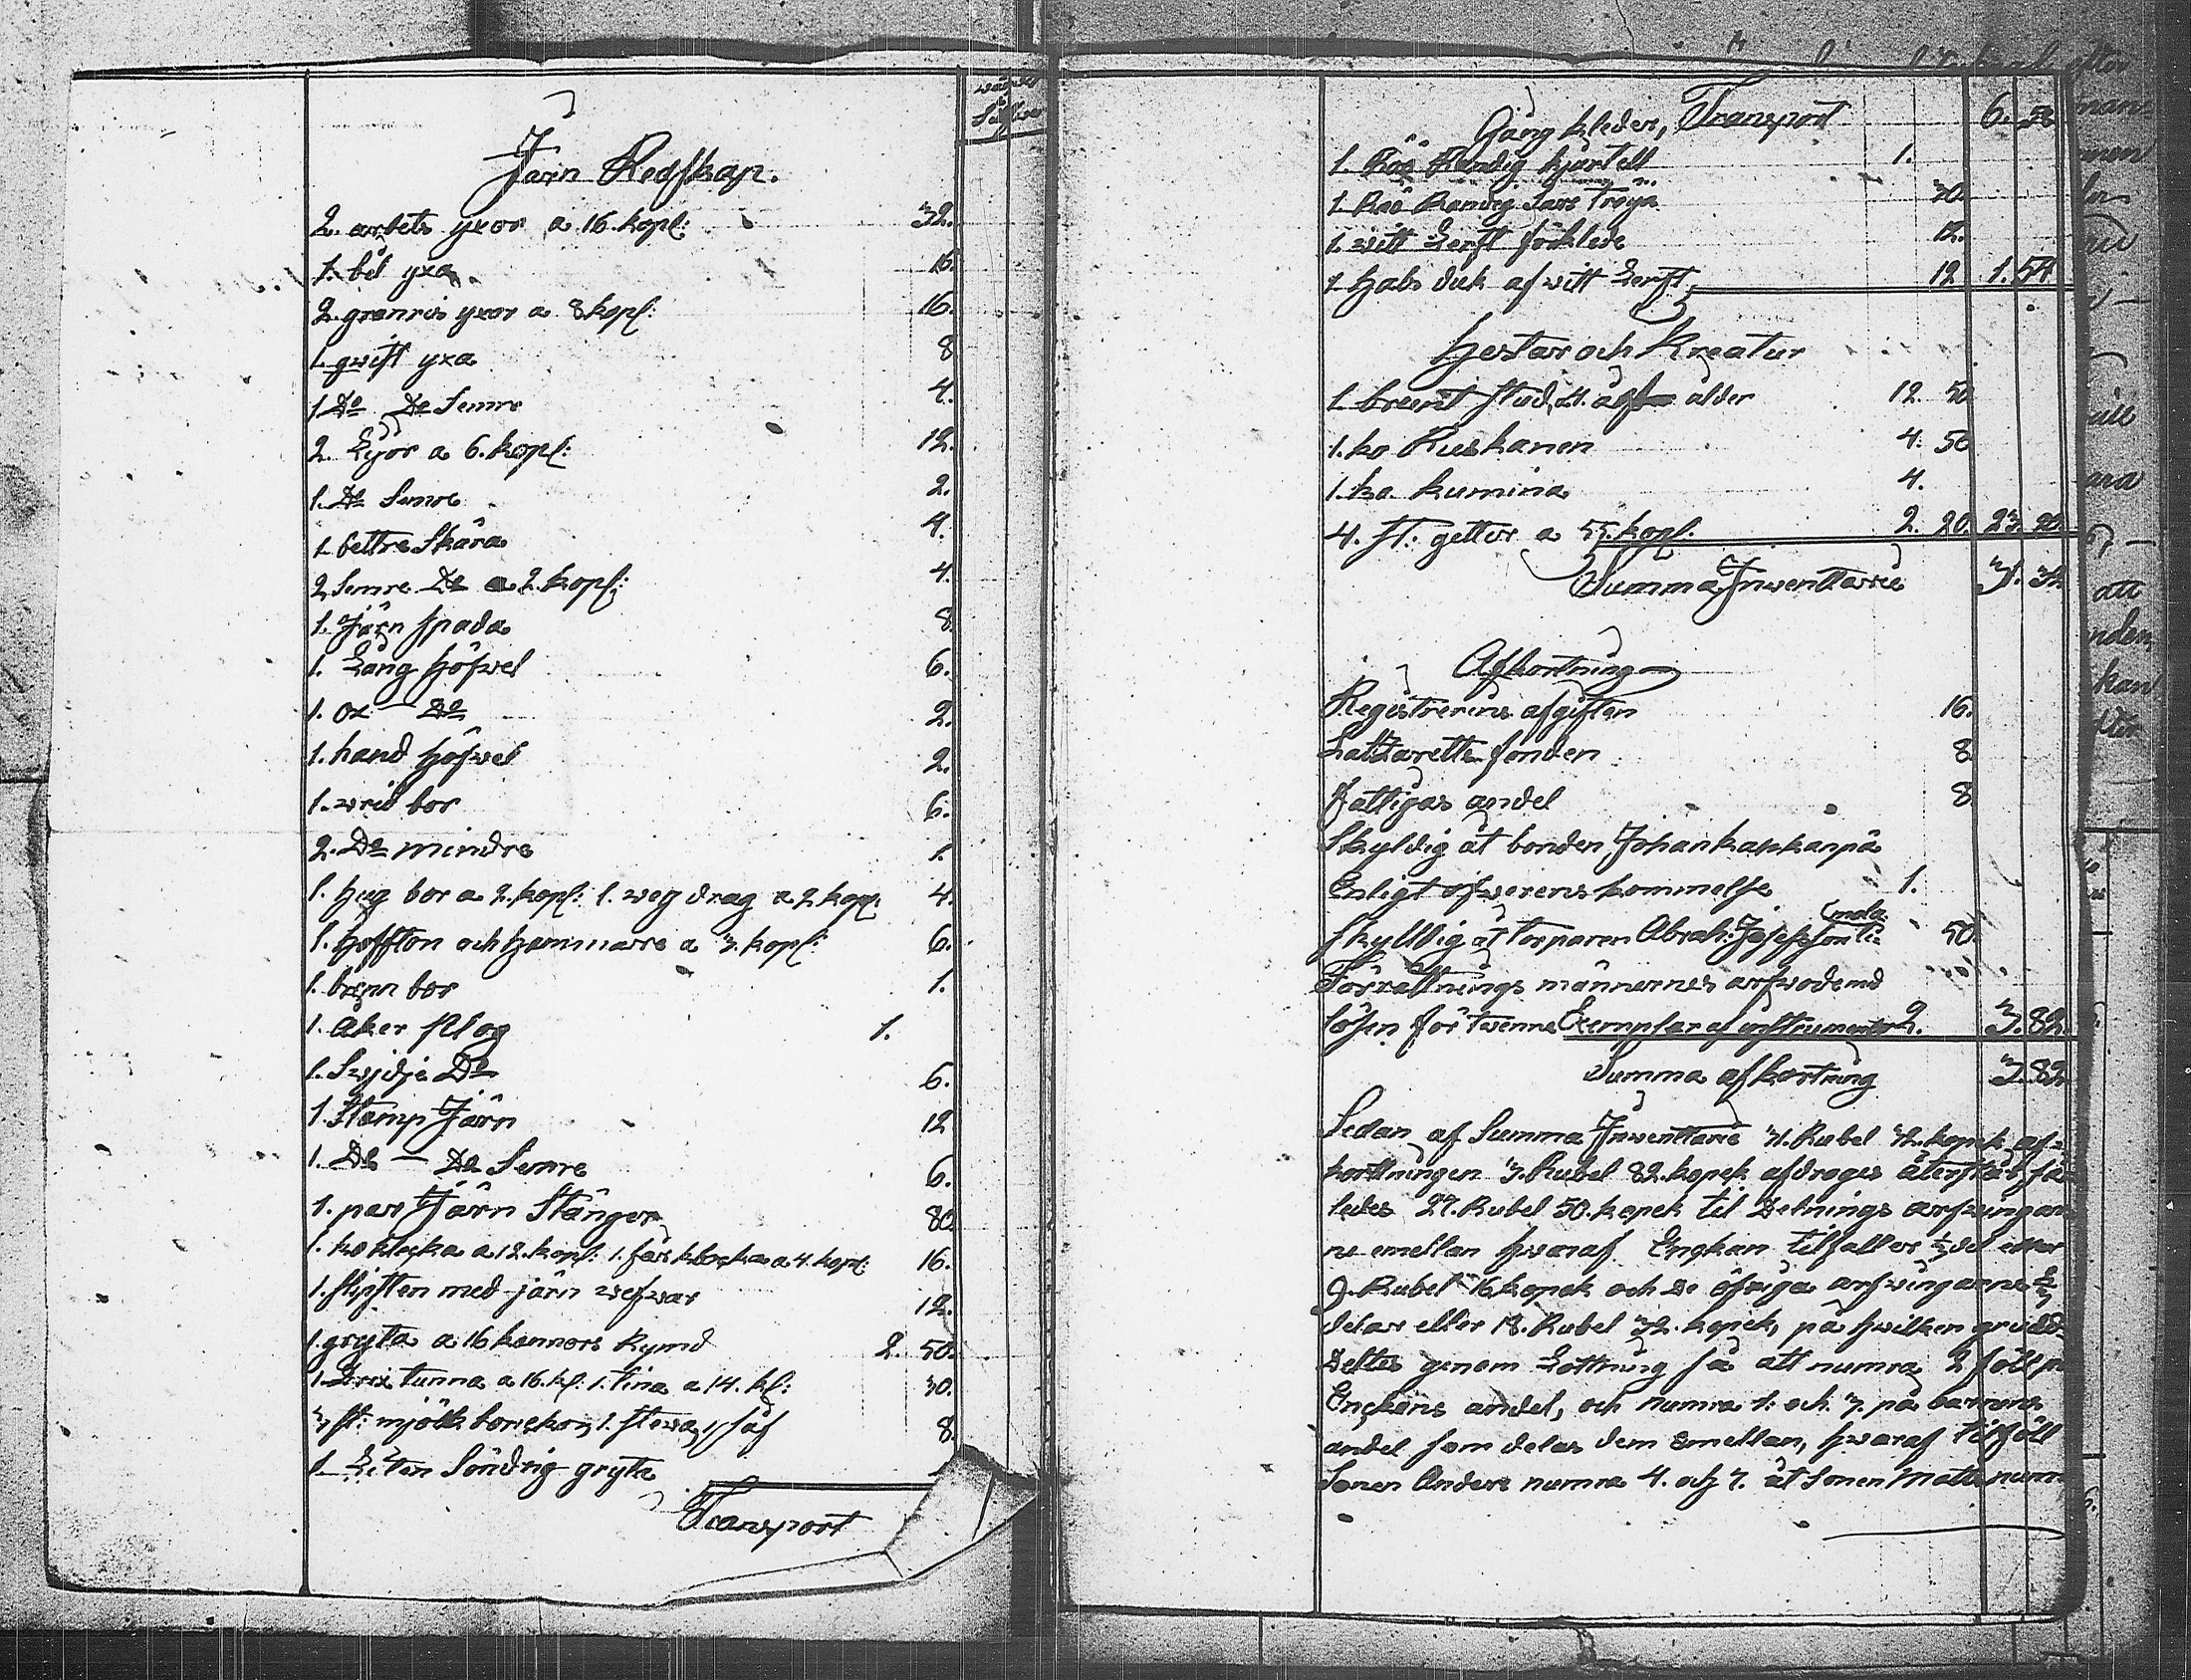 Järn Redskap.
2. arbets yxor a 16. kopk: 32.
1. bil yxa 16.
2. granris yxor a 8 kopk: 16.
1. qvist yxa 8
1. Do Do Semre 4.
2. Lÿor a 6. kopk: 12.
1. Do Semre 2.
1 bettre Skära 4.
2 Semre Do a 2. kopk: 4.
1. Järn spada 8.
1. Lång höfvel 6.
1. ox — Do 2.
1. hand höfvel 2.
1. vrid bor 6.
2. Do mindre 1.
1. hug bor a 2. kopk: 1. drag a 2 kopk 4.
1. och hammare a 3. kopk: 6.
1. bor 1.
1. Åker plog 1.
1. Do 6.
1. Stamp Järn 12
1. Do — Do Semre 6.
1. par Järn Stänger 80
1. ko klocka a 12. kopk: 1. får klocka a 4. kopk: 16.
1. slipsten med järn vefvar 12.
1. gryta a 16 kannors Rymd 2. 50.
1. tunna a 16. kp: 1. tina a 14. kp: 30.
3 st: mjölk 1. 1 såf 8.
1. Liten Söndrig gryta
Transport
Gång kleder, Transport 6. 58
1. Randig kjortell 1.
1 Randig Tröya 30.
1. vitt Lerft förklede 12.
1 hals duk af vitt Lerft 12 1. 54
Hestar och Kreatur
1. brunt stod, 21. ålder 12. 50
1. ko Ruskanen 4. 50
1. ko. kumina 4.
4. st: getter a 55. kopk. 2. 20. 23. 20
Summa Inventtarie 31. 32
Afkortning
Registrerins afgiften 16.
Latzaretts fonden 8
fattigas andel 8
Skyldig åt bonden Johan Kaskanpä
Enligt öfverens kommelse 1.
skylldig åt torparen Abrah: Josepsson 50
Förrättnings männernes arfvode med
lösen för tvenne Exemplar af instrumentet 2. 3. 82.
Summa afkortning 3. 82
Sedan af Summa Inventtarie 31. Rubel 32. kopek af=
korttningen 3. Rubel 82. kopek afdroges återstår så
ledes 27. Rubel 50. kopek til Delnings arfvingar
ne emellan hvaraf Enkan tilfaller 1/3 del eller
9. Rubel 16 kopek och De öfriga arfvingarne 2/3
delar eller 18. Rubel 32. kopek, på hvilken grund
Deltes genom Lottning så att numra 2 föll på
Enckans andel, och numra 1: och 3. på barnens
andel som delas dem emellan, hvaraf tilföll
Sonen Anders numra 4. och 7. åt Sonen Matts num